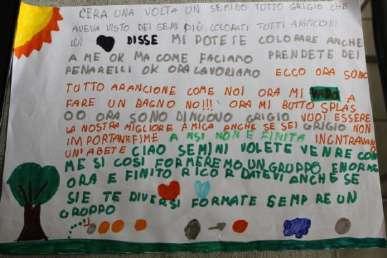 C'ERA UNA VOLTA UN SEMINO TUTTO GRIGIO CHE
AVEVA VISTO DEI SEMI PIÙ COLORATI TUTTI ARANCIONI
LUI DISSE MI POTETE COLORARE ANCHE
A ME OK MA COME FACIAMO PRENDETE DEI
PENARELLI OK ORA LAVORIAMO ECCO ORA SONO
TUTTO ARANCIONE COME NOI ORA MI A
FARE UN BAGNO NO!!! ORA MI BUTTO SPLAS
OO ORA SONO DI NUOVO GRIGIO VUOI ESSERE
LA NOSTRA MIGLIORE AMICA ANCHE SE SEI GRIGIO NON
IMPORTAN FIME A MSI NON È FINITA INCNTRAVANO
UN'ABETE CIAO SEMINI VOLETE VENRE CON
ME SI COSÌ FORMEREMO UN GRUPPO ENORME
ORA E FINITO RICORDATEVI ANCHE SE
SIE TE DIVERSI FORMATE SEMPRE UN
GRUPPO